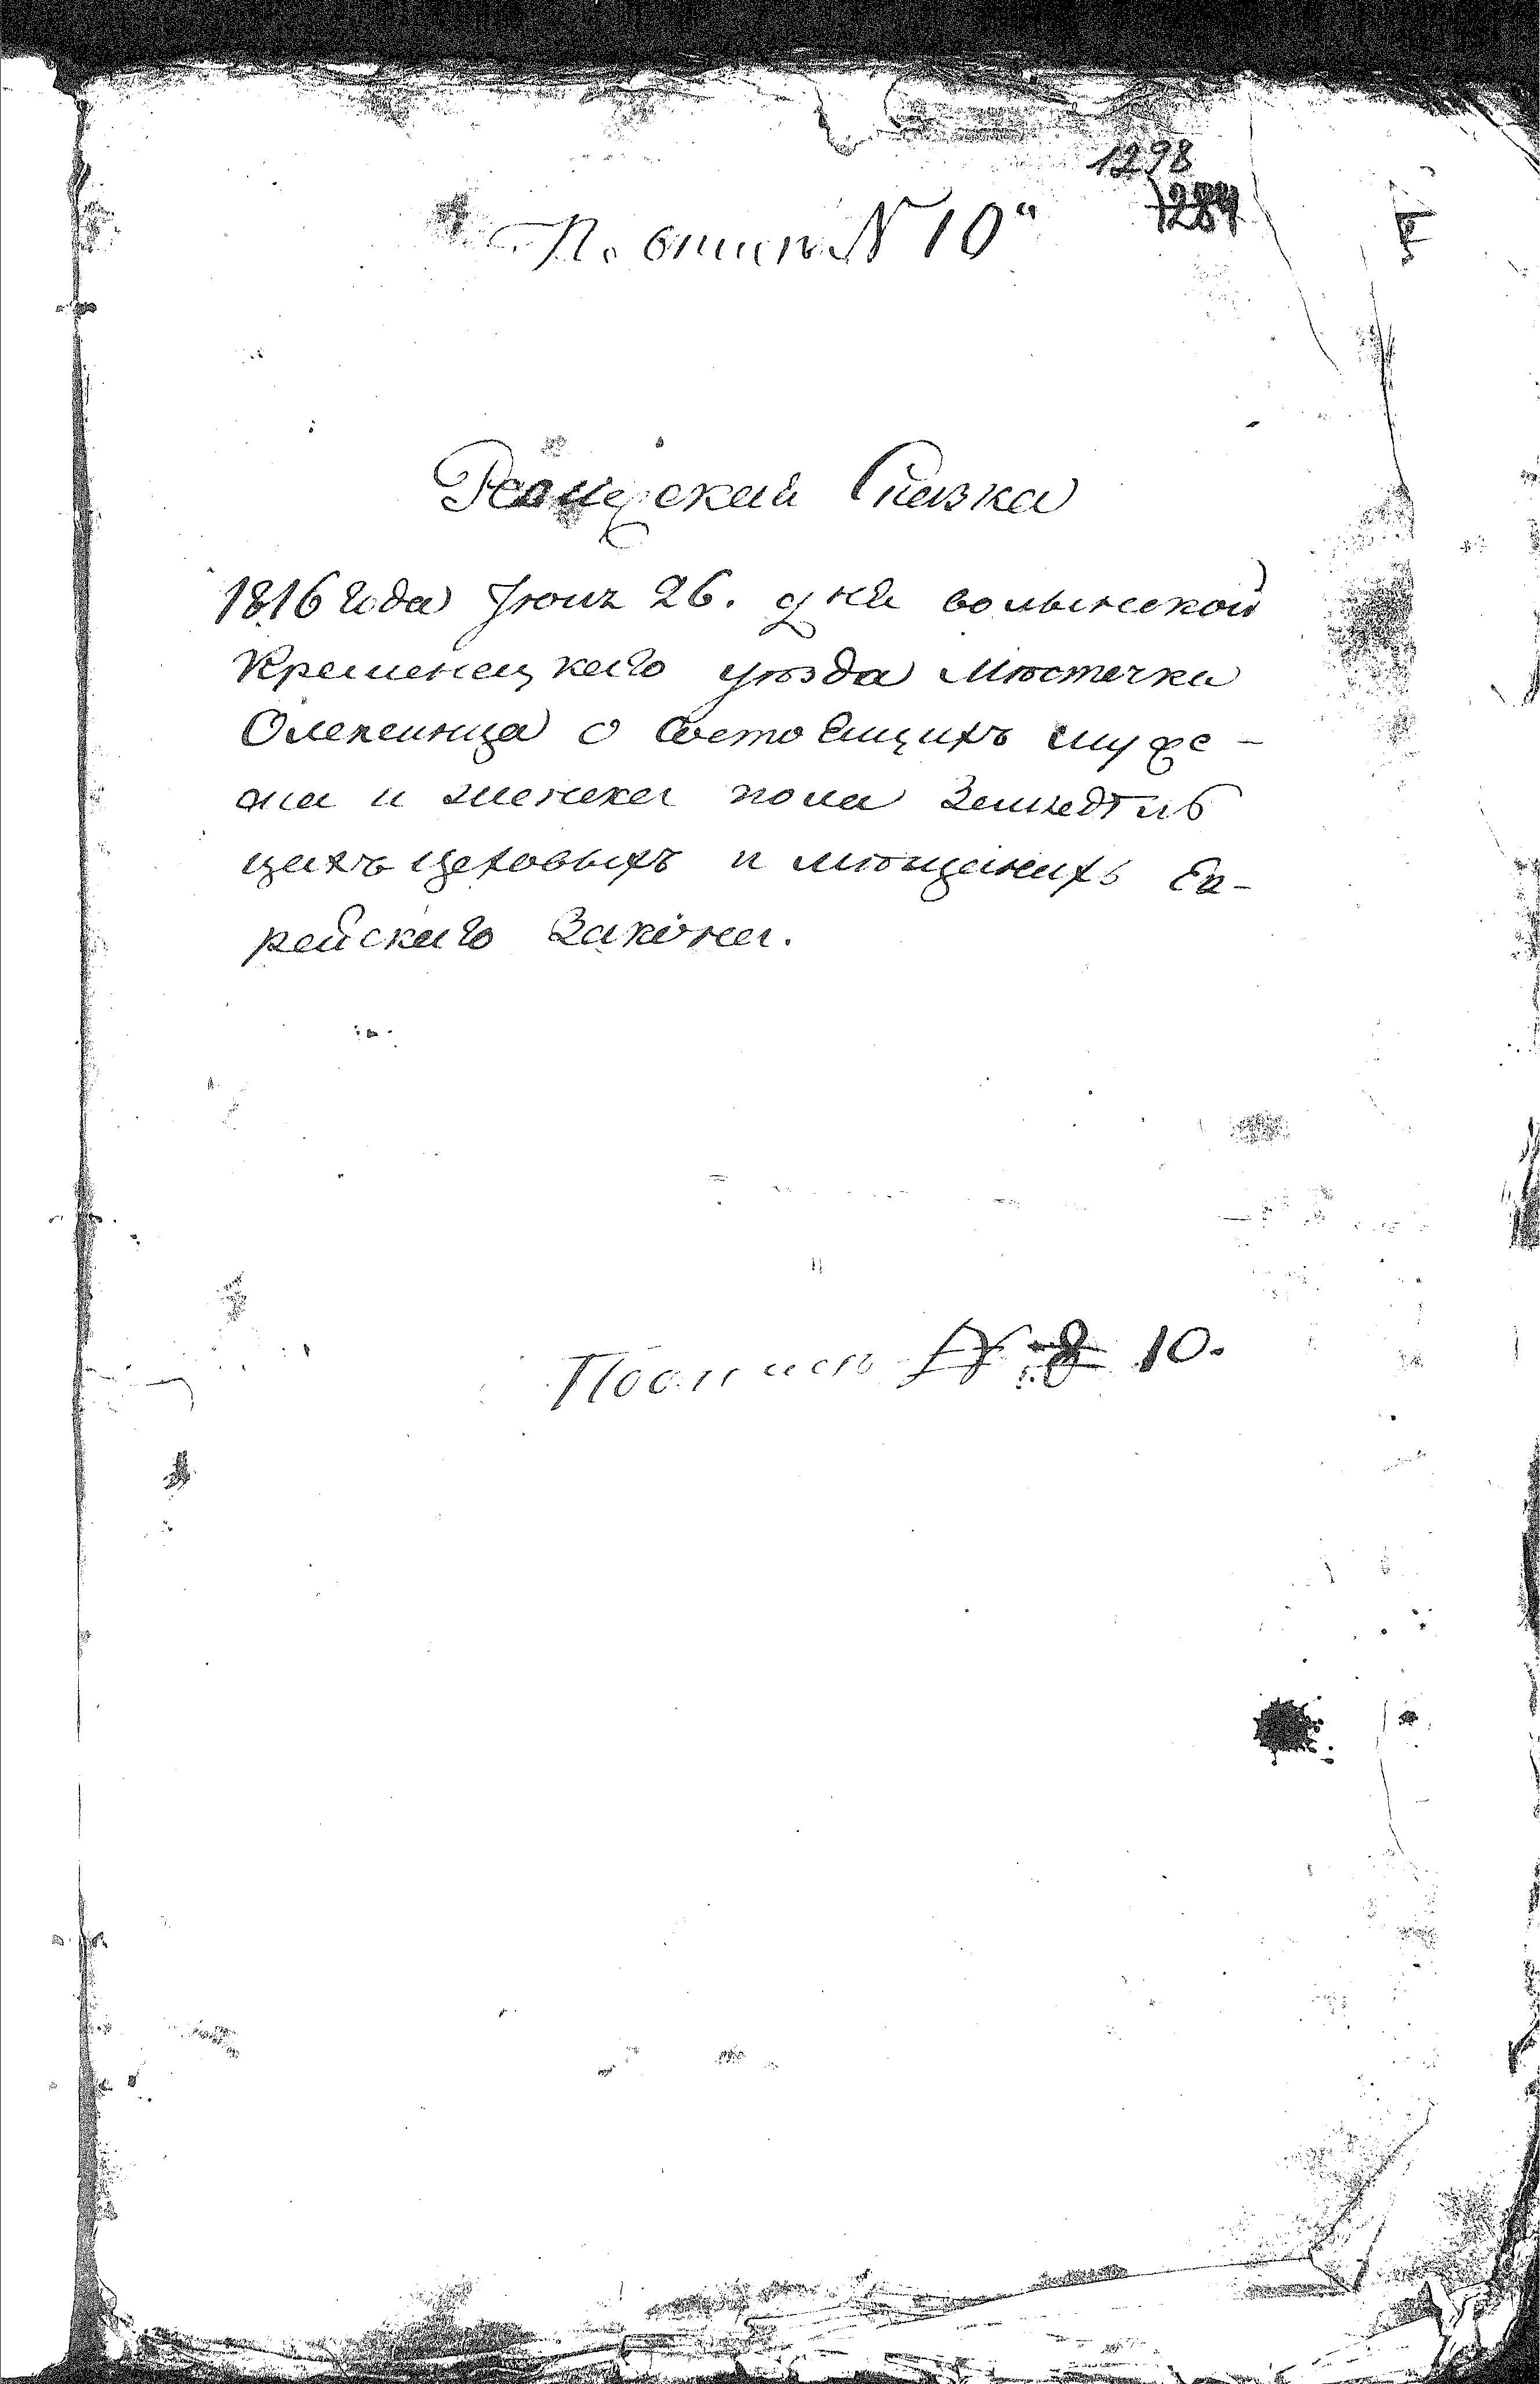 1298
1284
По описи N 10
Ревизская Сказка
1816 года Июня 26. дня волынской
Кременецкаго уѣзда Мѣстечка
Олексинца о Состоящихъ муже-
ска и женска пола
цехъ цеховыхъ и мѣщанахъ Ев-
рейскаго Закона.
По описи N 8 10.